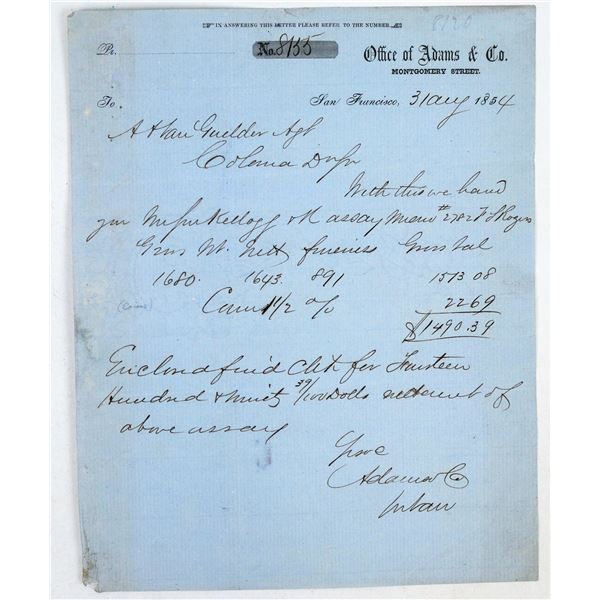 IN ANSWERING THIS LETTER PLEASE REFER TO THE NUMBER
8120
Pr. No. 8155 Office of Adams & Co.
MONTGOMERY STREET.
To San Francisco, 31 Aug 1854
A H Van Guelder Agt
Coloma
With this we hand
you Kellogg & assay #2782 Rogers
Gross Wt. Nett fineness Gross Val
1680. 1643. 891 1513 08
(Coins) 1 1/2 % 22 69
$1490.39
Enclosed find Chk for Fourteen
Hundred & Ninety 39/100 Dolls nett amt of
above assay
Adams & Co